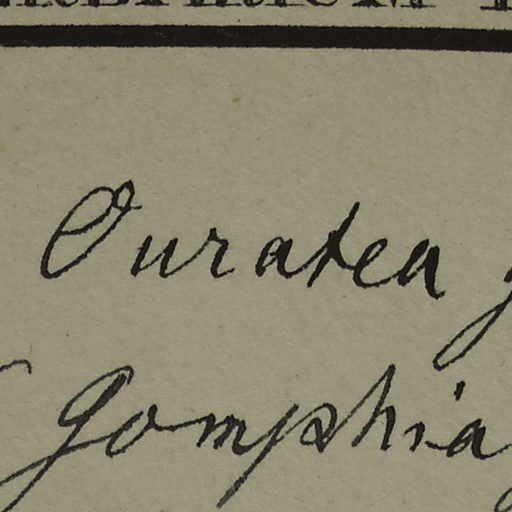 Ouratea
Gomphia